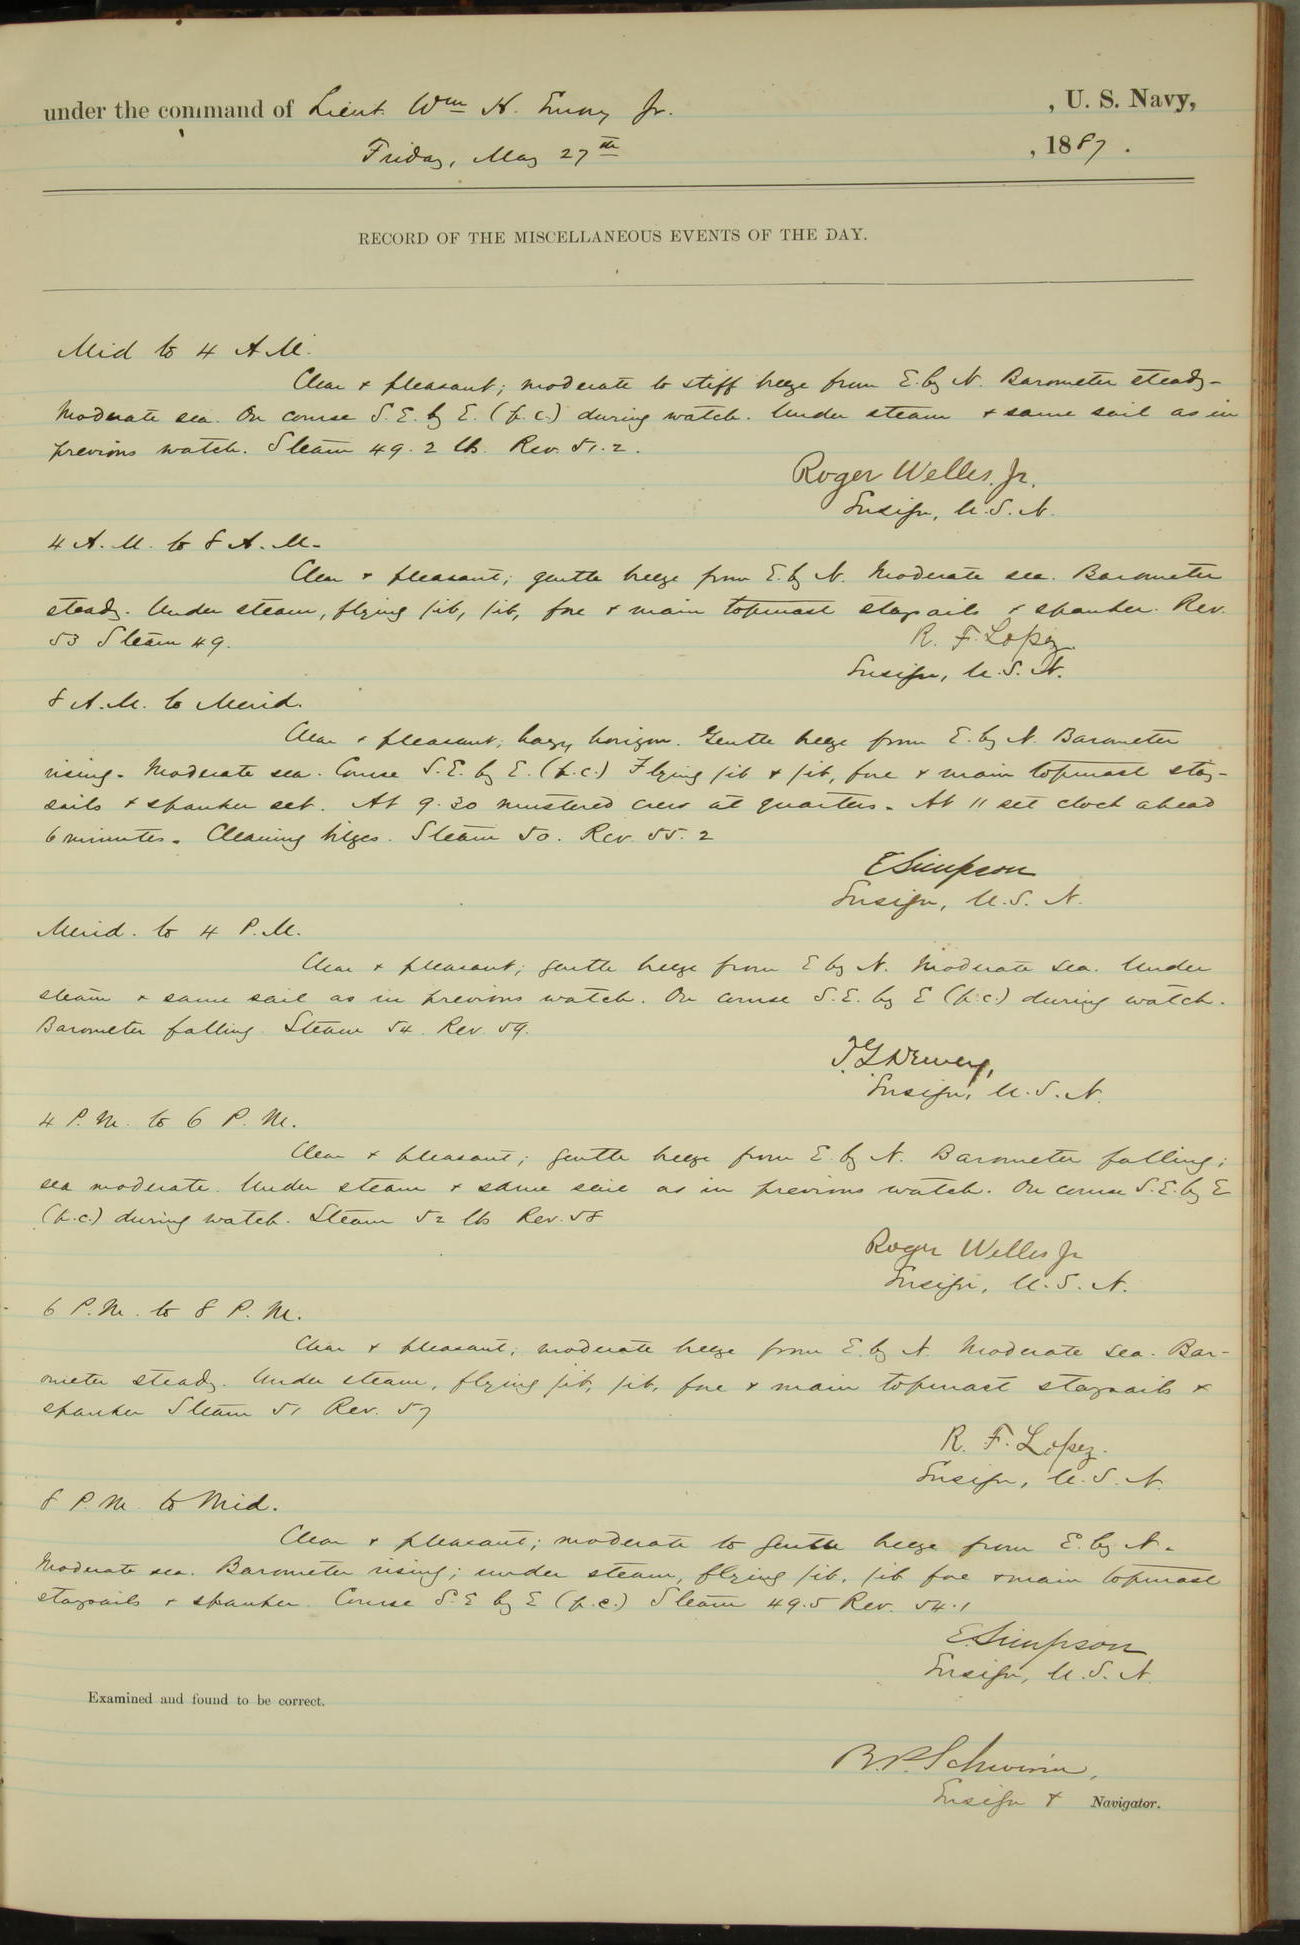 under the command of Lieut. Wm H. Emory Jr. , U. S. Navy,
Friday, May 27th , 1887.
RECORD OF THE MISCELLANEOUS EVENTS OF THE DAY.
Mid to 4 A.M.
Clear & pleasant; moderate to stiff breeze from E. by N. Barometer steady-
Moderate sea. On course S.E. by E. (p.c.) during watch. Under steam & same sail as in
previous watch. Steam 49.2 lbs. Rev. 51.2.
Roger Welles, Jr.
Ensign, U.S.N.
4 A.M. to 8 A.M.
Clear & pleasant; gentle breeze from E. by N. Moderate sea. Barometer
steady. Under steam, flying jib, jib, fore & main topmast staysails & spanker. Rev.
53 Steam 49.
R. F. Lopez
Ensign, U.S.N.
8 A.M. to Merid.
Clear & pleasant; hazy horizon. Gentle breeze from E. by N. Barometer
rising. Moderate sea. Course S.E. by E. (p.c.) Flying jib & jib, fore & main topmast stay-
sails & spanker set. At 9.30 mustered crew at quarters. At 11 set clock ahead
6 minutes. Cleaning bilges. Steam 50. Rev. 55.2
E Simpson
Ensign, U.S.N.
Merid. to 4 P.M.
Clear & pleasant; gentle breeze from E by N. Moderate sea. Under
steam & same sail as in previous watch. On course S.E. by E (p.c.) during watch.
Barometer falling. Steam 54. Rev. 59.
T. G. Dewey,
Ensign, U.S.N.
4 P.M. to 6 P.M.
Clear & pleasant; gentle breeze from E. by N. Barometer falling;
sea moderate. Under steam & same sail as in previous watch. On course S.E. by E
(p.c.) during watch. Steam 52 lbs Rev. 58
Roger Welles Jr
Ensign, U.S.N.
6 P.M. to 8 P.M.
Clear & pleasant; moderate breeze from E. by N. Moderate sea. Bar-
ometer steady. Under steam, flying jib, jib, fore & main topmast staysails &
spanker Steam 51 Rev. 57
R. F. Lopez.
Ensign, U.S.N.
8 P.M. to Mid.
Clear & pleasant; moderate to gentle breeze from E. by N.
Moderate sea. Barometer rising; under steam, flying jib, jib fore & main topmast
staysails & spanker. Course S.E by E (p.c.) Steam 49.5 Rev. 54.1
E. Simpson
Ensign, U.S.N.
Examined and found to be correct.
R. P. Schwerin,
Ensign & Navigator.